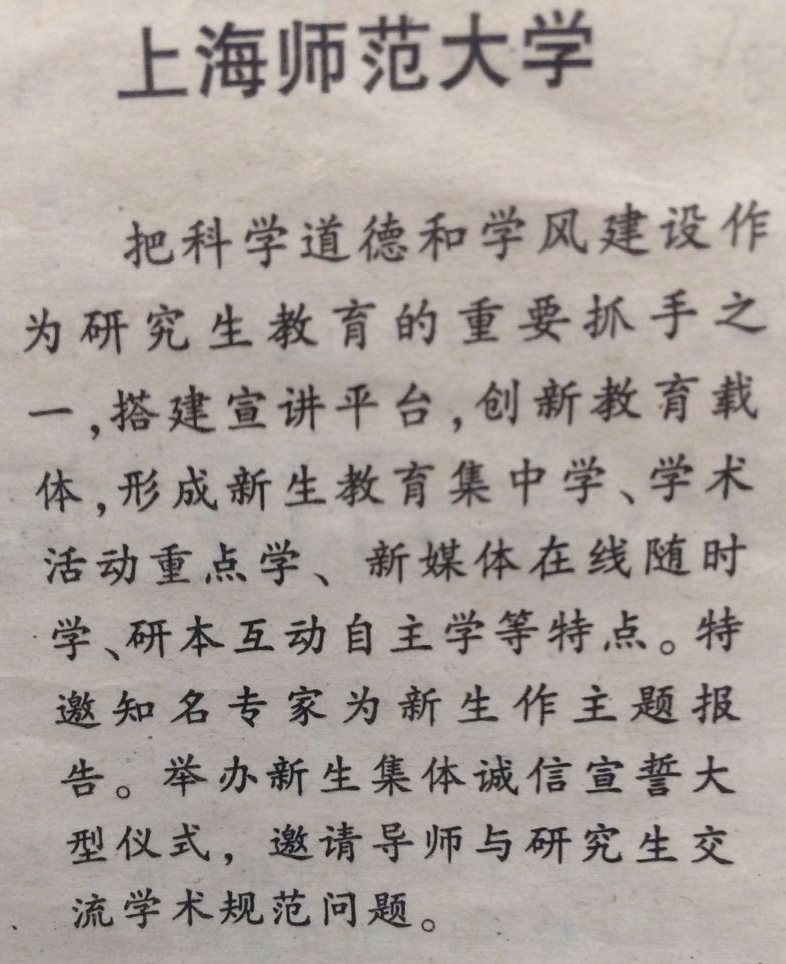 上海师范大学
把科学道德和学风建设作
为研究生教育的重要抓手之
一,搭建宣讲平台,创新教育载
体,形成新生教育集中学、学术
活动重点学、新媒体在线随时
学、研本互动自主学等特点。特
邀知名专家为新生作主题报
告。举办新生集体诚信宣誓大
型仪式，邀请导师与研究生交
流学术规范问题。